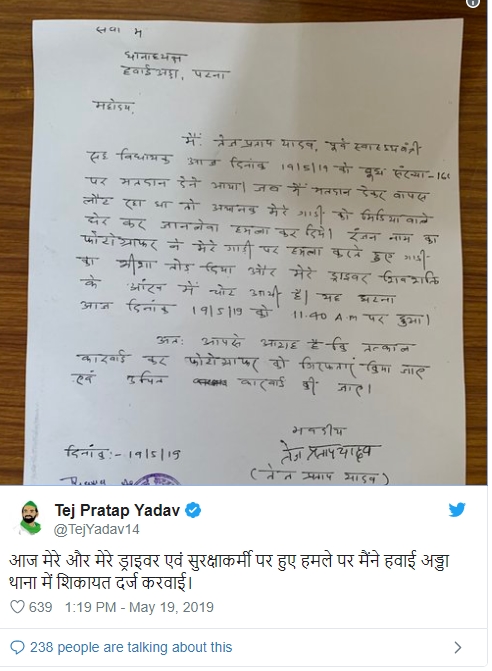 सेवा में
थानाध्यक्ष
हवाई अड्डा, पटना
महोदय,
मैं तेज प्रताप यादव, पूर्व स्वास्थ्यमंत्री
सह विधायक आज दिनांक 19/5/19 को बूथ संख्या-161
पर मतदान देने आया। जब मैं मतदान देकर वापस
लौट रहा था तो अचानक मेरे गाडी को मिडिया वाले
घेर कर जानलेवा हमला कर दिये। रंजन नाम का
फोटोग्राफर ने मेरे गाडी पर हमला करते हुए गाडी
का शीशा तोड़ दिया और मेरे ड्राइवर शिवशक्ति
के आंख में चोट आयी है। यह घटना
आज दिनांक 19/5/19 को 11.40 A.m पर हुआ।
अतः आपसे आग्रह है कि तत्काल
कारवाई कर फोटोग्राफर को गिरफ्तार किया जाए
एवं उचित कारवाई की जाए।
भवदीय
दिनांक:- 19/5/19 तेज प्रताप यादव
(तेज प्रताप यादव)
Tej Pratap Yadav
@TejYadav14
आज मेरे और मेरे ड्राइवर एवं सुरक्षाकर्मी पर हुए हमले पर मैंने हवाई अड्डा
थाना में शिकायत दर्ज करवाई।
639 1:19 PM - May 19, 2019
238 people are talking about this